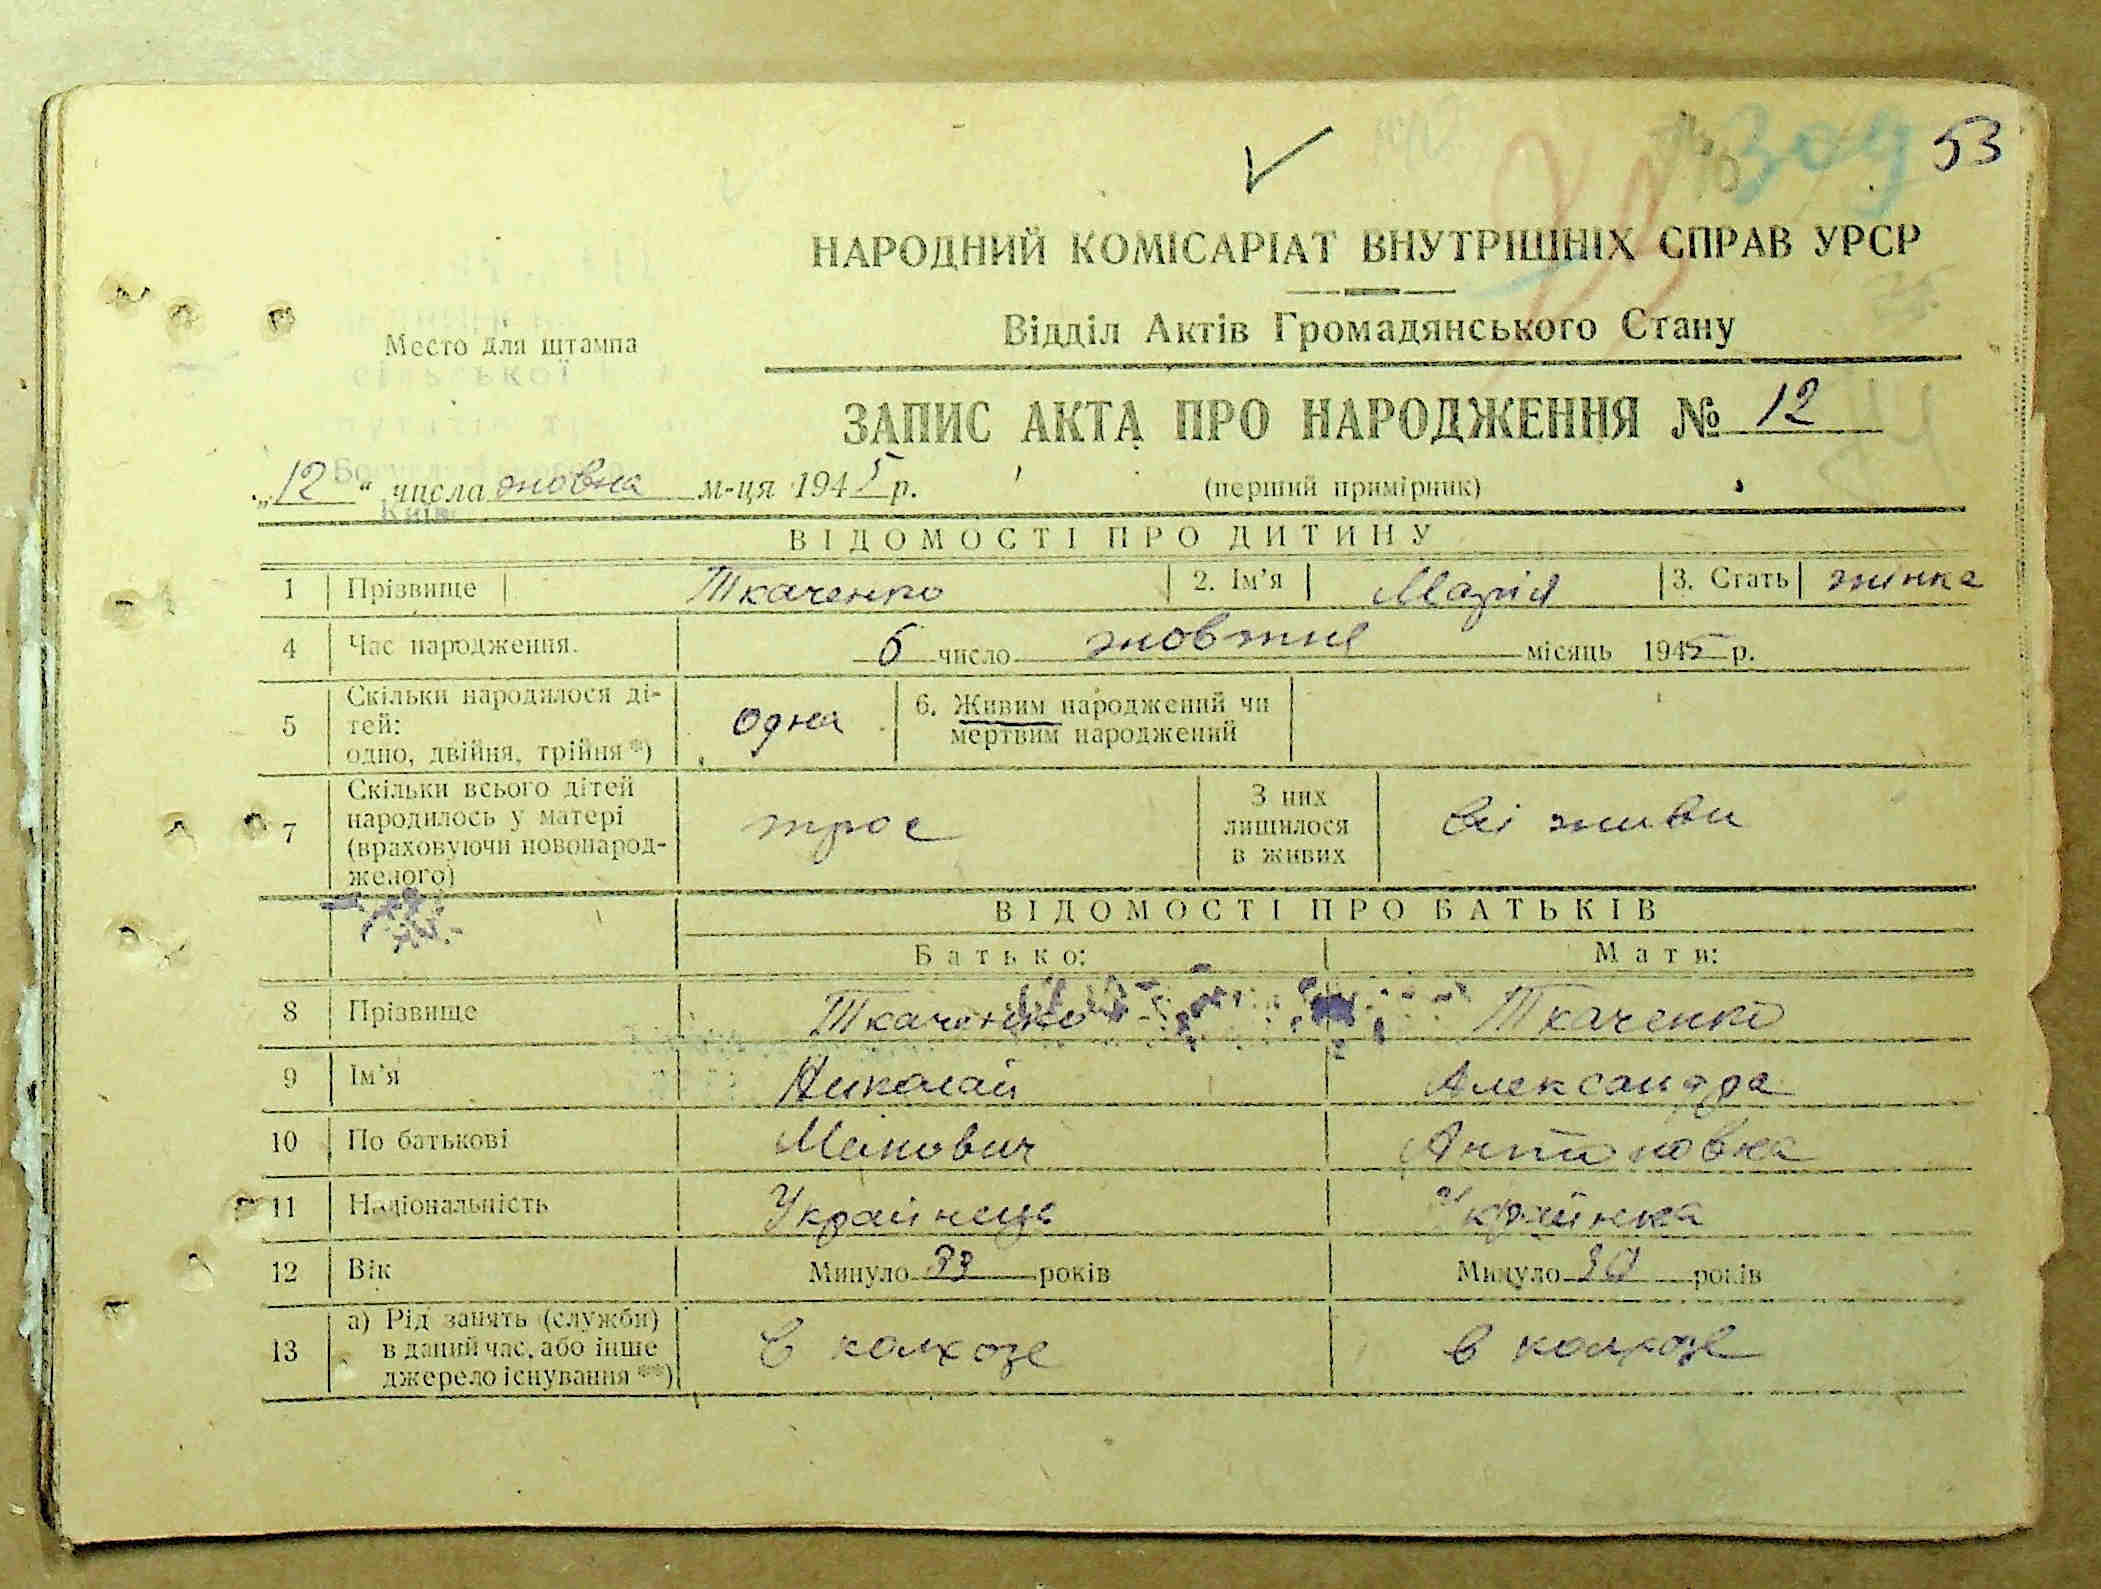 53
НАРОДНИЙ КОМІСАРІАТ ВНУТРІШНІХ СПРАВ УРСР
Место для штампа
Відділ Актів Громадянського Стану
ЗАПИС АКТА ПРО НАРОДЖЕННЯ № 12
„12“ числа м-ця 1945 р. (перший примірник)
ВІДОМОСТІ ПРО ДИТИНУ
1 Прізвище Ткаченко 2. Ім’я Марія 3. Стать жінка
4 Час народження. число жовтня місяць 1945 р.
5 Скільки народилося ді-
тей:
одно, двійня, трійня*) одна 6. Живим народжений чи
мертвим народжений
7 Скільки всього дітей
народилось у матері
(враховуючи новонарод-
женого) троє З них
лишилося
в живих всі живи
ВІДОМОСТІ ПРО БАТЬКІВ
Батько: Мати:
8 Прізвище Ткаченко Ткаченко
9 Ім’я Николай Александра
10 По батькові Антоновна
11 Національність Українець Українка
12 Вік Минуло 33 років Минуло років
13 а) Рід занять (служби)
в даний час, або інше
джерело існування**) в колхозе в колхозе